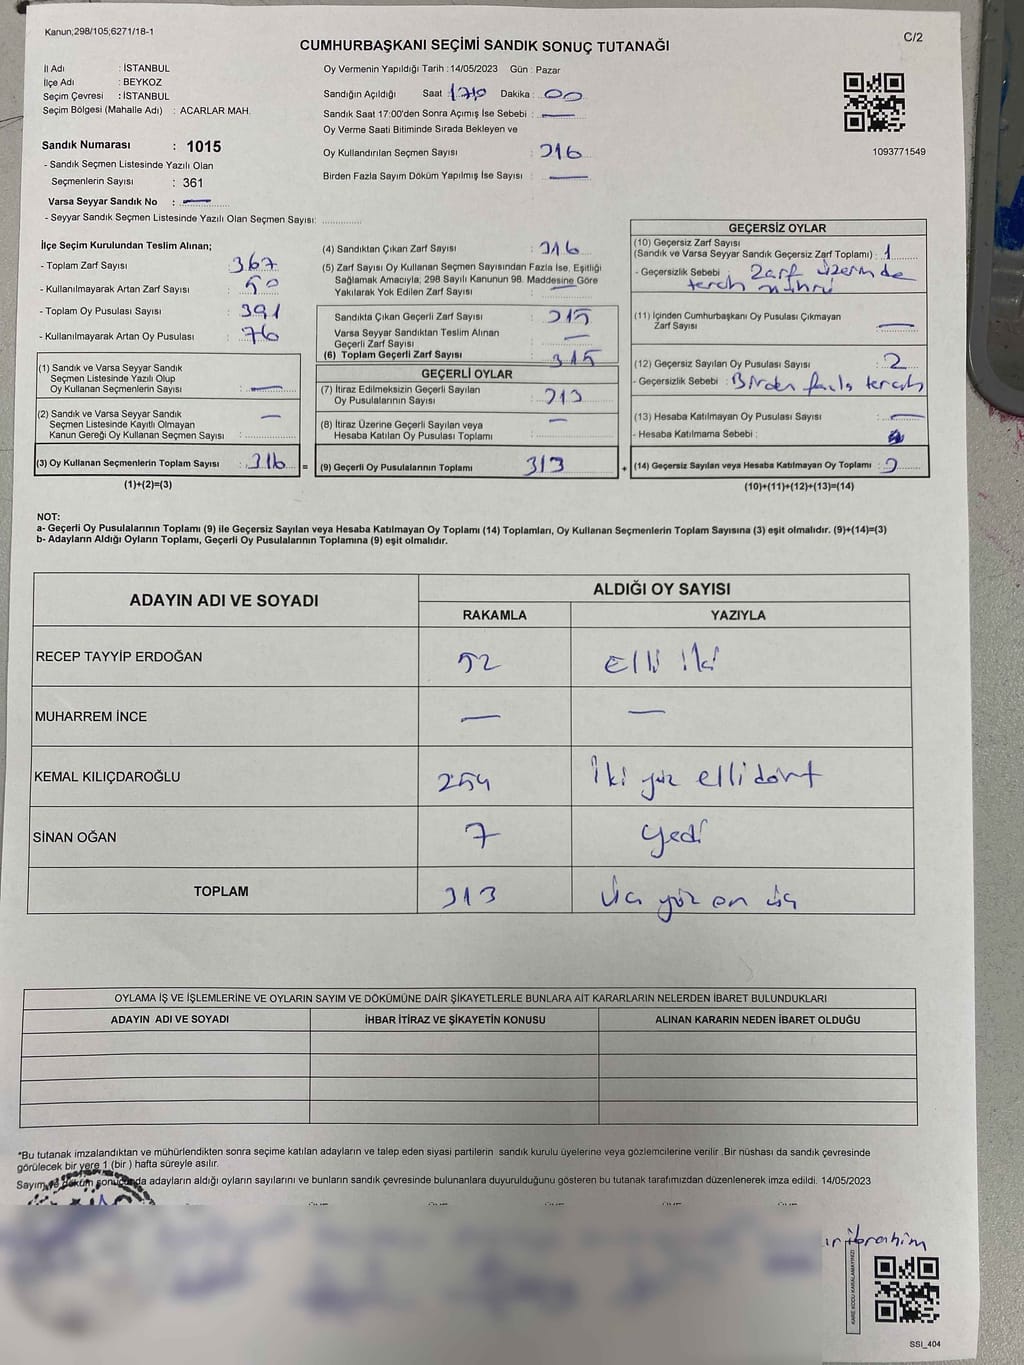 Kanun;298/105;6271/18-1
C/2
CUMHURBAŞKANI SEÇİMİ SANDIK SONUÇ TUTANAĞI
İl Adı : İSTANBUL
İlçe Adı : BEYKOZ
Seçim Çevresi : İSTANBUL
Seçim Bölgesi (Mahalle Adı) : ACARLAR MAH.
Sandık Numarası : 1015
- Sandık Seçmen Listesinde Yazılı Olan
Seçmenlerin Sayısı : 361
Varsa Seyyar Sandık No : —
- Seyyar Sandık Seçmen Listesinde Yazılı Olan Seçmen Sayısı:
Oy Vermenin Yapıldığı Tarih : 14/05/2023 Gün : Pazar
Sandığın Açıldığı Saat : Dakika : 00
Sandık Saat 17:00'den Sonra Açımış İse Sebebi : —
Oy Verme Saati Bitiminde Sırada Bekleyen ve
Oy Kullandırılan Seçmen Sayısı : 316
Birden Fazla Sayım Döküm Yapılmış İse Sayısı : —
1093771549
İlçe Seçim Kurulundan Teslim Alınan;
- Toplam Zarf Sayısı : 367
- Kullanılmayarak Artan Zarf Sayısı : 50
- Toplam Oy Pusulası Sayısı : 391
- Kullanılmayarak Artan Oy Pusulası : 76
(1) Sandık ve Varsa Seyyar Sandık
Seçmen Listesinde Yazılı Olup
Oy Kullanan Seçmenlerin Sayısı : —
(2) Sandık ve Varsa Seyyar Sandık
Seçmen Listesinde Kayıtlı Olmayan
Kanun Gereği Oy Kullanan Seçmen Sayısı : —
(3) Oy Kullanan Seçmenlerin Toplam Sayısı : 316 =
(1)+(2)=(3)
(4) Sandıktan Çıkan Zarf Sayısı : 316
(5) Zarf Sayısı Oy Kullanan Seçmen Sayısından Fazla İse, Eşitliği
Sağlamak Amacıyla, 298 Sayılı Kanunun 98. Maddesine Göre
Yakılarak Yok Edilen Zarf Sayısı : —
Sandıkta Çıkan Geçerli Zarf Sayısı : 315
Varsa Seyyar Sandıktan Teslim Alınan
Geçerli Zarf Sayısı : —
(6) Toplam Geçerli Zarf Sayısı : 315
GEÇERLİ OYLAR
(7) İtiraz Edilmeksizin Geçerli Sayılan
Oy Pusulalarının Sayısı : 313
(8) İtiraz Üzerine Geçerli Sayılan veya
Hesaba Katılan Oy Pusulası Toplamı : —
(9) Geçerli Oy Pusulalarının Toplamı 313 +
GEÇERSİZ OYLAR
(10) Geçersiz Zarf Sayısı
(Sandık ve Varsa Seyyar Sandık Geçersiz Zarf Toplamı) : 1
- Geçersizlik Sebebi : Zarf üzerinde
tercih mührü
(11) İçinden Cumhurbaşkanı Oy Pusulası Çıkmayan
Zarf Sayısı : —
(12) Geçersiz Sayılan Oy Pusulası Sayısı : 2
- Geçersizlik Sebebi : Birden fazla tercih
(13) Hesaba Katılmayan Oy Pusulası Sayısı : —
- Hesaba Katılmama Sebebi :
(14) Geçersiz Sayılan veya Hesaba Katılmayan Oy Toplamı : 3
(10)+(11)+(12)+(13)=(14)
NOT:
a- Geçerli Oy Pusulalarının Toplamı (9) ile Geçersiz Sayılan veya Hesaba Katılmayan Oy Toplamı (14) Toplamları, Oy Kullanan Seçmenlerin Toplam Sayısına (3) eşit olmalıdır. (9)+(14)=(3)
b- Adayların Aldığı Oyların Toplamı, Geçerli Oy Pusulalarının Toplamına (9) eşit olmalıdır.
ADAYIN ADI VE SOYADI ALDIĞI OY SAYISI
RAKAMLA YAZIYLA
RECEP TAYYİP ERDOĞAN 52 elli iki
MUHARREM İNCE — —
KEMAL KILIÇDAROĞLU 254 iki yüz elli dört
SİNAN OĞAN 7 yedi
TOPLAM 313 üç yüz on üç
OYLAMA İŞ VE İŞLEMLERİNE VE OYLARIN SAYIM VE DÖKÜMÜNE DAİR ŞİKAYETLERLE BUNLARA AİT KARARLARIN NELERDEN İBARET BULUNDUKLARI
ADAYIN ADI VE SOYADI İHBAR İTİRAZ VE ŞİKAYETİN KONUSU ALINAN KARARIN NEDEN İBARET OLDUĞU
*Bu tutanak imzalandıktan ve mühürlendikten sonra seçime katılan adayların ve talep eden siyasi partilerin sandık kurulu üyelerine veya gözlemcilerine verilir .Bir nüshası da sandık çevresinde
görülecek bir yere 1 (bir ) hafta süreyle asılır.
Sayım ve döküm sonucunda adayların aldığı oyların sayılarını ve bunların sandık çevresinde bulunanlara duyurulduğunu gösteren bu tutanak tarafımızdan düzenlenerek imza edildi. 14/05/2023
ibrahim
KARE KODU KARALAMAYINIZ!
SSI_404